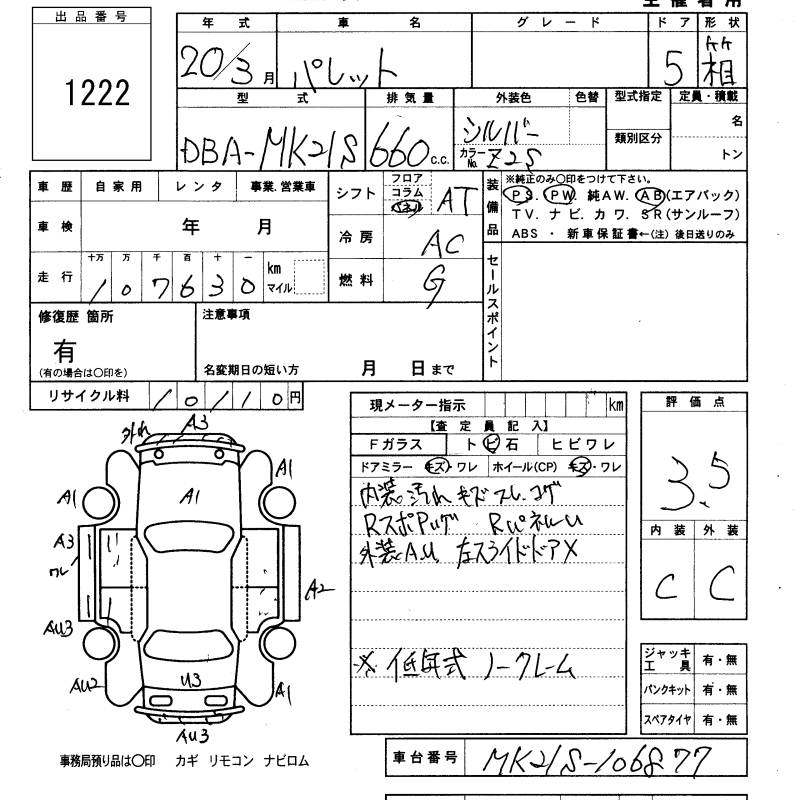 出品番号
1222
年式 車名 グレード ドア 形状
20/3月 パレット 5 箱
型式 排気量 外装色 色替 型式指定 定員・積載
DBA-MK21S 660 c.c. シルバー カラーNo. Z2S 類別区分 名 トン
車歴 自家用 レンタ 事業.営業車
車検 年 月
走行 十万 万 千 百 十 一
107630 km マイル
シフト フロア コラム パネル AT
冷房 AC
燃料 G
装備品 ※純正のみ○印をつけて下さい。
PS. PW. 純AW. AB(エアバック)
TV. ナビ. カワ. SR(サンルーフ)
ABS ・ 新車保証書←(注) 後日送りのみ
セールスポイント
修復歴 箇所
有
(有の場合は○印を)
注意事項
名変期日の短い方 月 日まで
リサイクル料 10110円
現メーター指示 km
【査定員記入】
Fガラス トビ石 ヒビワレ
ドアミラー キズ・ワレ ホイール(CP) キズ・ワレ
内装 汚れ キズ スレ コゲ
外装A.U. 左スライドドアX
※ 低年式 ノークレーム
評価点
3.5
内装 外装
C C
ジャッキ工具 有・無
パンクキット 有・無
スペアタイヤ 有・無
外れ A3
A1 A1 A1
A3
ワレ
A2
AU3
AU2 U3 A1
AU3
事務局預り品は○印 カギ リモコン ナビロム
車台番号 MK21S-106877